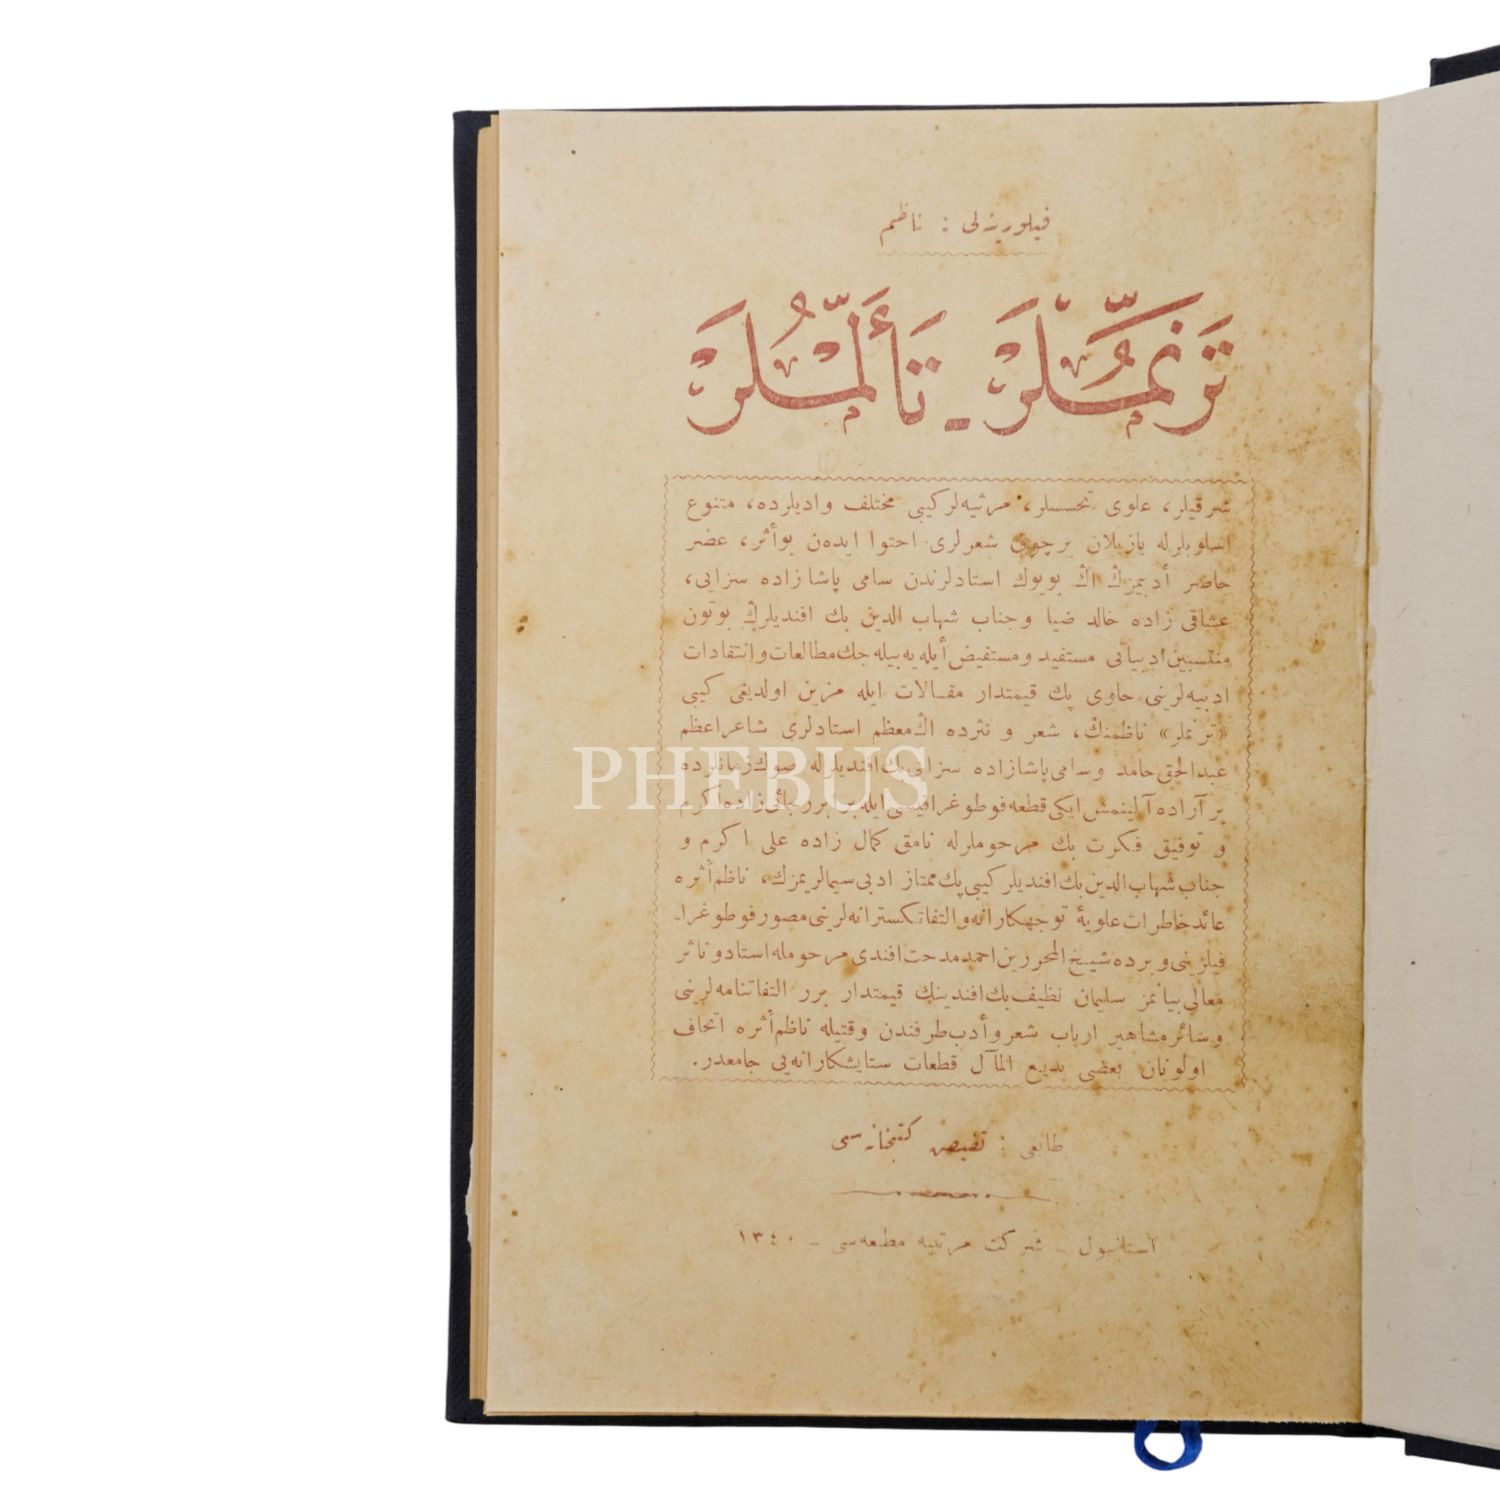 فيلورينه‌لى : ناظم
تَرنمُّلَرْ ـ تَأَلمُّلَرْ
شرقيلر، علوى تحسسلر، مرثيه‌لر كيبى مختلف واديلرده، متنوع
اسلوبلرله يازيلان برچوق شعرلرى احتوا ايده‌ن بوأثر، عصر
حاضر أدبيمزڭ اڭ بويوك استادلرندن سامى پاشا زاده سزايى،
عشاقى زاده خالد ضيا وجناب شهاب الدين بك افنديلرڭ بوتون
منتسبين ادبياتى مستفيد ومستفيض أيله‌يه‌بيله‌جك مطالعات وانتقادات
ادبيه‌لرينى حاوى پك قيمتدار مقالات ايله مزين اولديغى كيبى
«ترنملر» ناظمنڭ، شعر و نثرده اڭ معظم استادلرى شاعراعظم
عبدالحق حامد وسامى پاشازاده سزايى بك افنديلرله صوك زمانلرده
بر آراده آلينمش ايكى قطعه فوطوغرافيسى ايله برر رجائى زاده اكرم
و توفيق فكرت بك مرحوملرله نامق كمال زاده على اكرم و
جناب شهاب الدين بك افنديلر كيبى پك ممتاز ادبى سيمالريمزك، ناظم أثره
عائد خاطرات علويۀ توجهكارانه والتفاتكسترانه‌لرينى مصور فوطوغرا-
فيلرينى وبرده شيخ المحررين احمد مدحت افندى مرحومله استاد وناثر
معالى بيانمز سليمان نظيف بك افندينك قيمتدار برر التفاتنامه‌لرينى
وسائر مشاهير ارباب شعر وأدب طرفندن وقتيله ناظم أثره اتحاف
اولونان بعضى بديع المآل قطعات ستايشكارانه‌يى جامعدر.
طابعى : تفيض كتبخانه‌سى
استانبول ـ شركت مرتبيه مطبعه‌سى ـ ١٣٤٠
PHEBUS